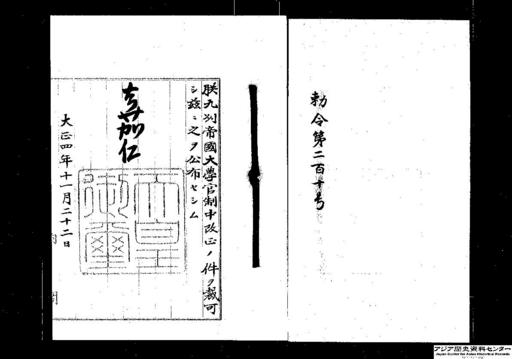 勅令第二百十号
朕九州帝國大學官制中改正ノ件ヲ裁可
シ茲ニ之ヲ公布セシム
嘉仁
天皇
御璽
大正四年十一月二十二日
アジア歴史資料センター
Japan Center for Asian Historical Records